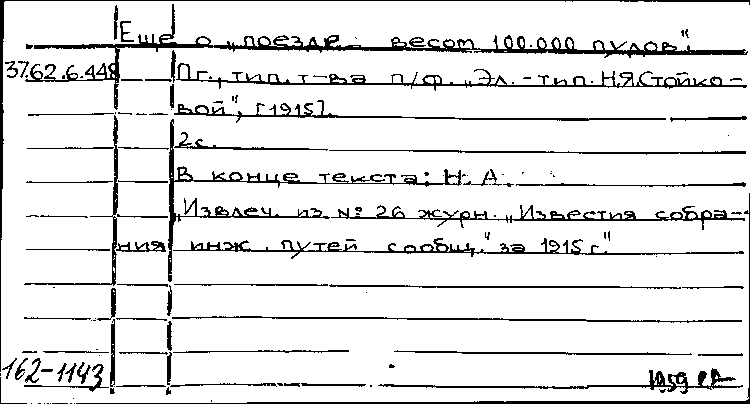 Еще о „поезде весом 100.000 пудов".
37.62.6.448 Пг., тип. т-ва п/ф. „Эл.-тип. Н.Я.Стойко-
вой", [1915].
2с.
В конце текста: Н. А.
„Извлеч. из № 26 журн. „Известия собра-
ния инж. путей сообщ." за 1915 г."
162-1143 1959